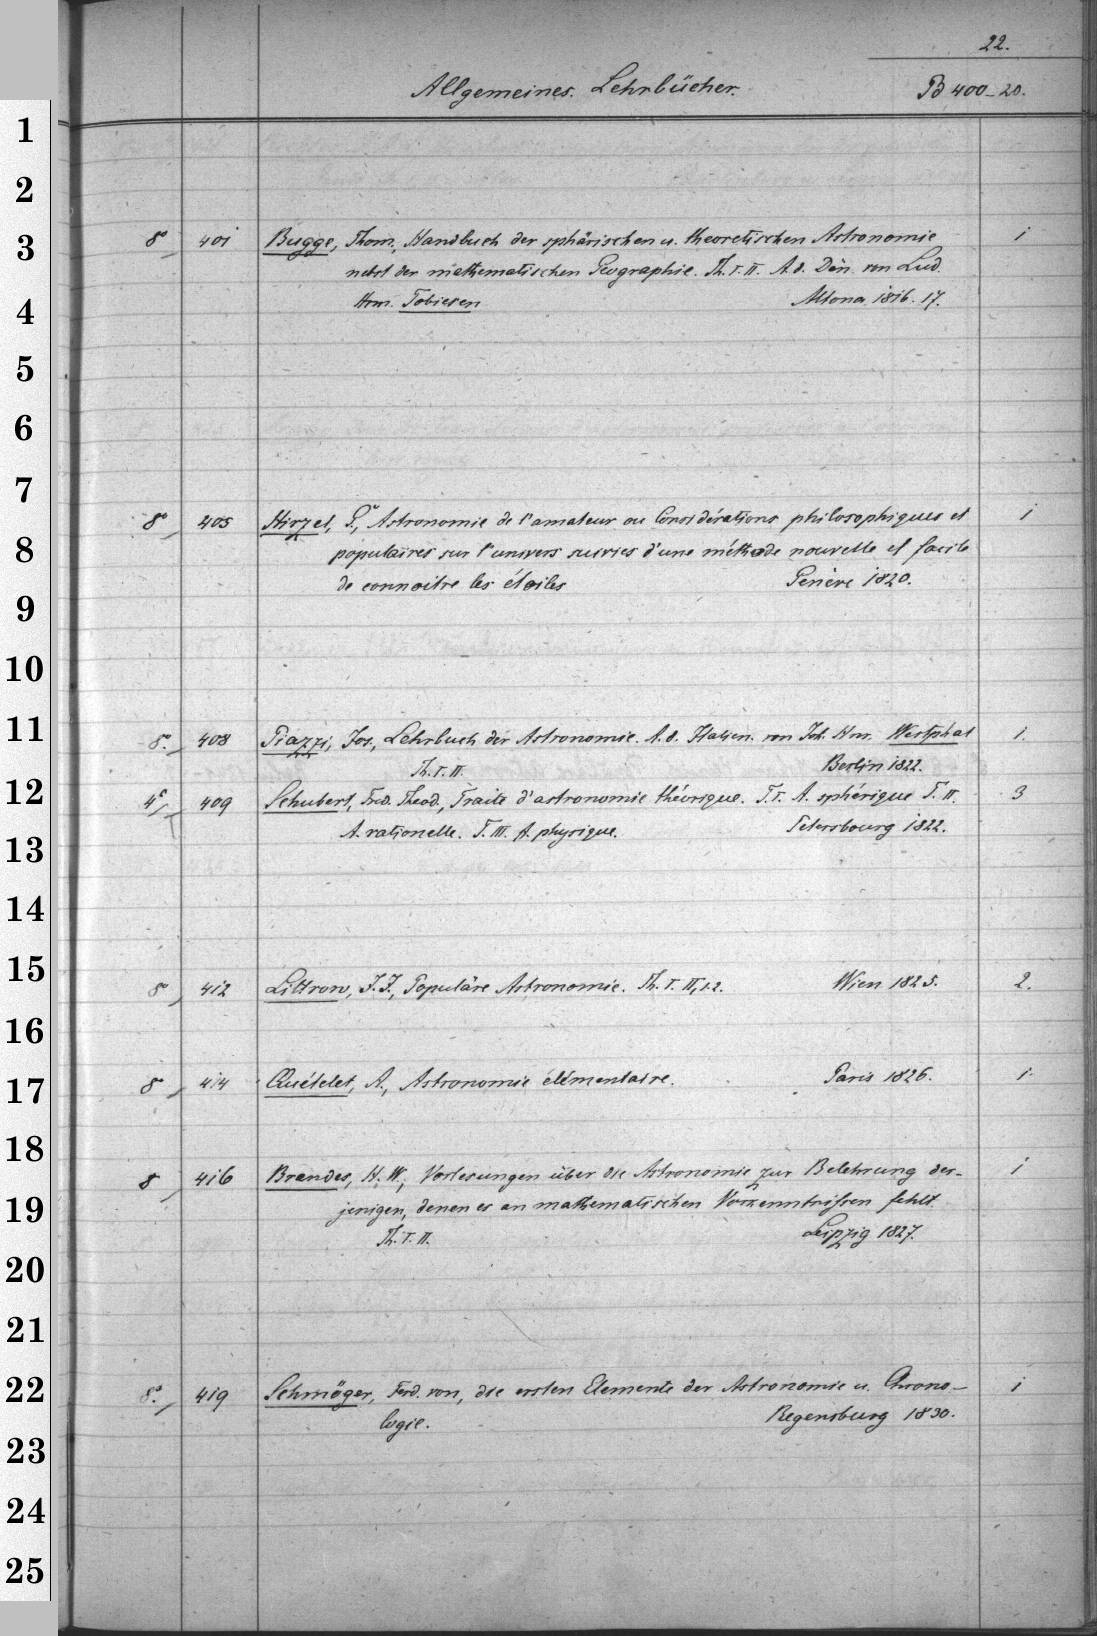 22.
Allgemeines. Lehrbücher. B 400-20.
1
2
3
8° 401 Bugge, Thom., Handbuch der sphärischen u. theoretischen Astronomie 1
nebst der mathematischen Geographie. Th. I. II. A. d. Dän. von Lud.
4
Hrm. Tobiesen Altona 1816. 17.
5
6
7
8° 405 Hirzel, Astronomie de l'amateur ou Considérations philosophiques et 1
8
populaires sur l'univers suivies d'une méthode nouvelle et facile
9
de connoitre les étoiles Genève 1820.
10
11
8°. 408 Piazzi, Jos., Lehrbuch der Astronomie. A. d. Italien. von Joh. Hrn. Westphal 1.
Th. I. II. Berlin 1822.
12
4° 409 Schubert, Fred. Theod., Traité d'astronomie théorique. T. I. A. sphérique T. II. 3
13
A. rationelle. T. III. A. physique. Petersbourg 1822.
14
15
8° 412 Littrow, J. J., Populäre Astronomie. Th. I. II, 1.2. Wien 1825. 2.
16
17
8° 414 Quételet, A., Astronomie élémentaire. Paris 1826. 1.
18
8 416 Brandes, H. W., Vorlesungen über die Astronomie zur Belehrung der- 1
19
jenigen, denen es an mathematischen Vorkenntnissen fehlt
Th. I. II. Leipzig 1827.
20
21
22
8°. 419 Schmöger, Ferd. von, die ersten Elemente der Astronomie u. Chrono- 1
logie. Regensburg 1830.
23
24
25